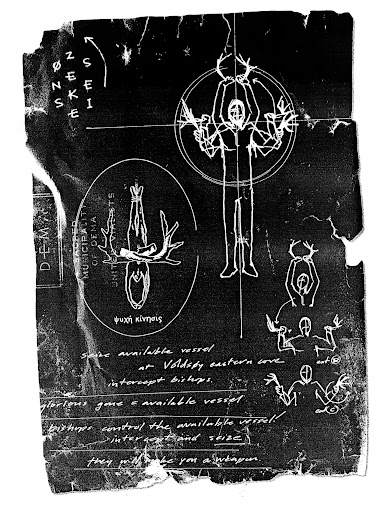 ØNS
ZEKE
SEI
DEMA
MUNICIPALITY
OF DEMA
ψυχή κίνησις
seize available vessel
at Voldsøy eastern cove
intercept bishops.
glorious gone = available vessel
bishops control the available vessel!
intercept and seize
they will make you a weapon.